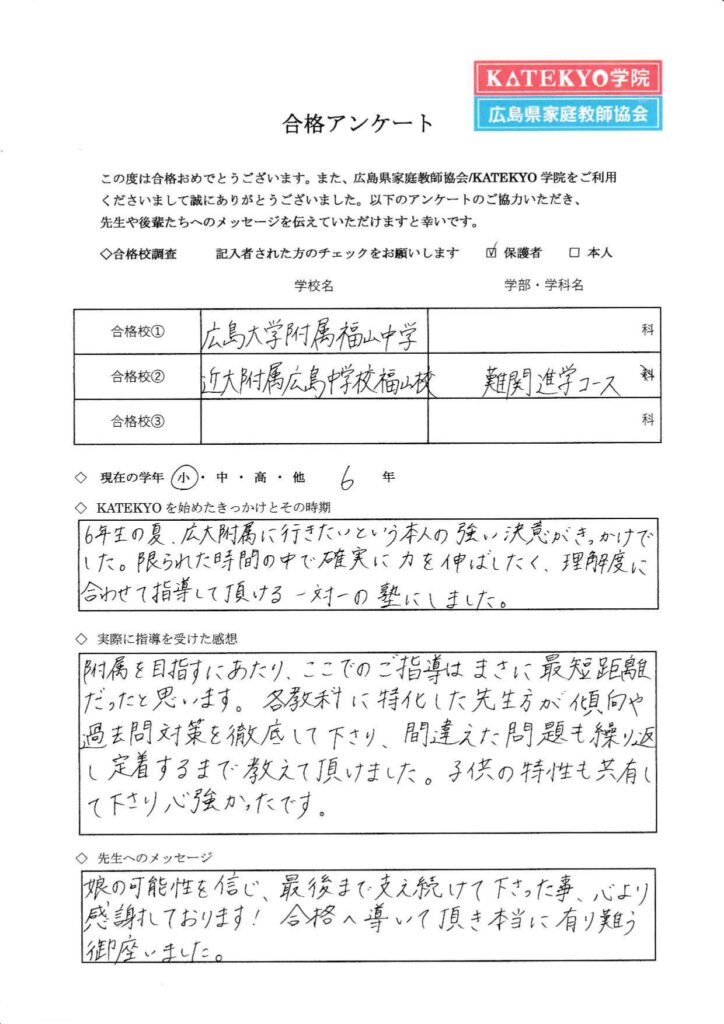 KATEKYO学院
広島県家庭教師協会
合格アンケート
この度は合格おめでとうございます。また、広島県家庭教師協会/KATEKYO 学院をご利用
くださいまして誠にありがとうございました。以下のアンケートのご協力いただき、
先生や後輩たちへのメッセージを伝えていただけますと幸いです。
◇合格校調査 記入者された方のチェックをお願いします ☑ 保護者 □ 本人
学校名 学部・学科名
合格校① 広島大学附属福山中学 科
合格校② 近大附属広島中学校福山校 難関進学コース 科
合格校③ 科
◇ 現在の学年 小・中・高・他 6 年
◇ KATEKYO を始めたきっかけとその時期
6年生の夏、広大附属に行きたいという本人の強い決意がきっかけで
した。限られた時間の中で確実に力を伸ばしたく、理解度に
合わせて指導して頂ける一対一の塾にしました。
◇ 実際に指導を受けた感想
附属を目指すにあたり、ここでのご指導はまさに最短距離
だったと思います。各教科に特化した先生方が傾向や
過去問対策を徹底して下さり、間違えた問題も繰り返
し定着するまで教えて頂けました。子供の特性も共有し
て下さり心強かったです。
◇ 先生へのメッセージ
娘の可能性を信じ、最後まで支え続けて下さった事、心より
感謝しております！合格へ導いて頂き本当に有り難う
御座いました。